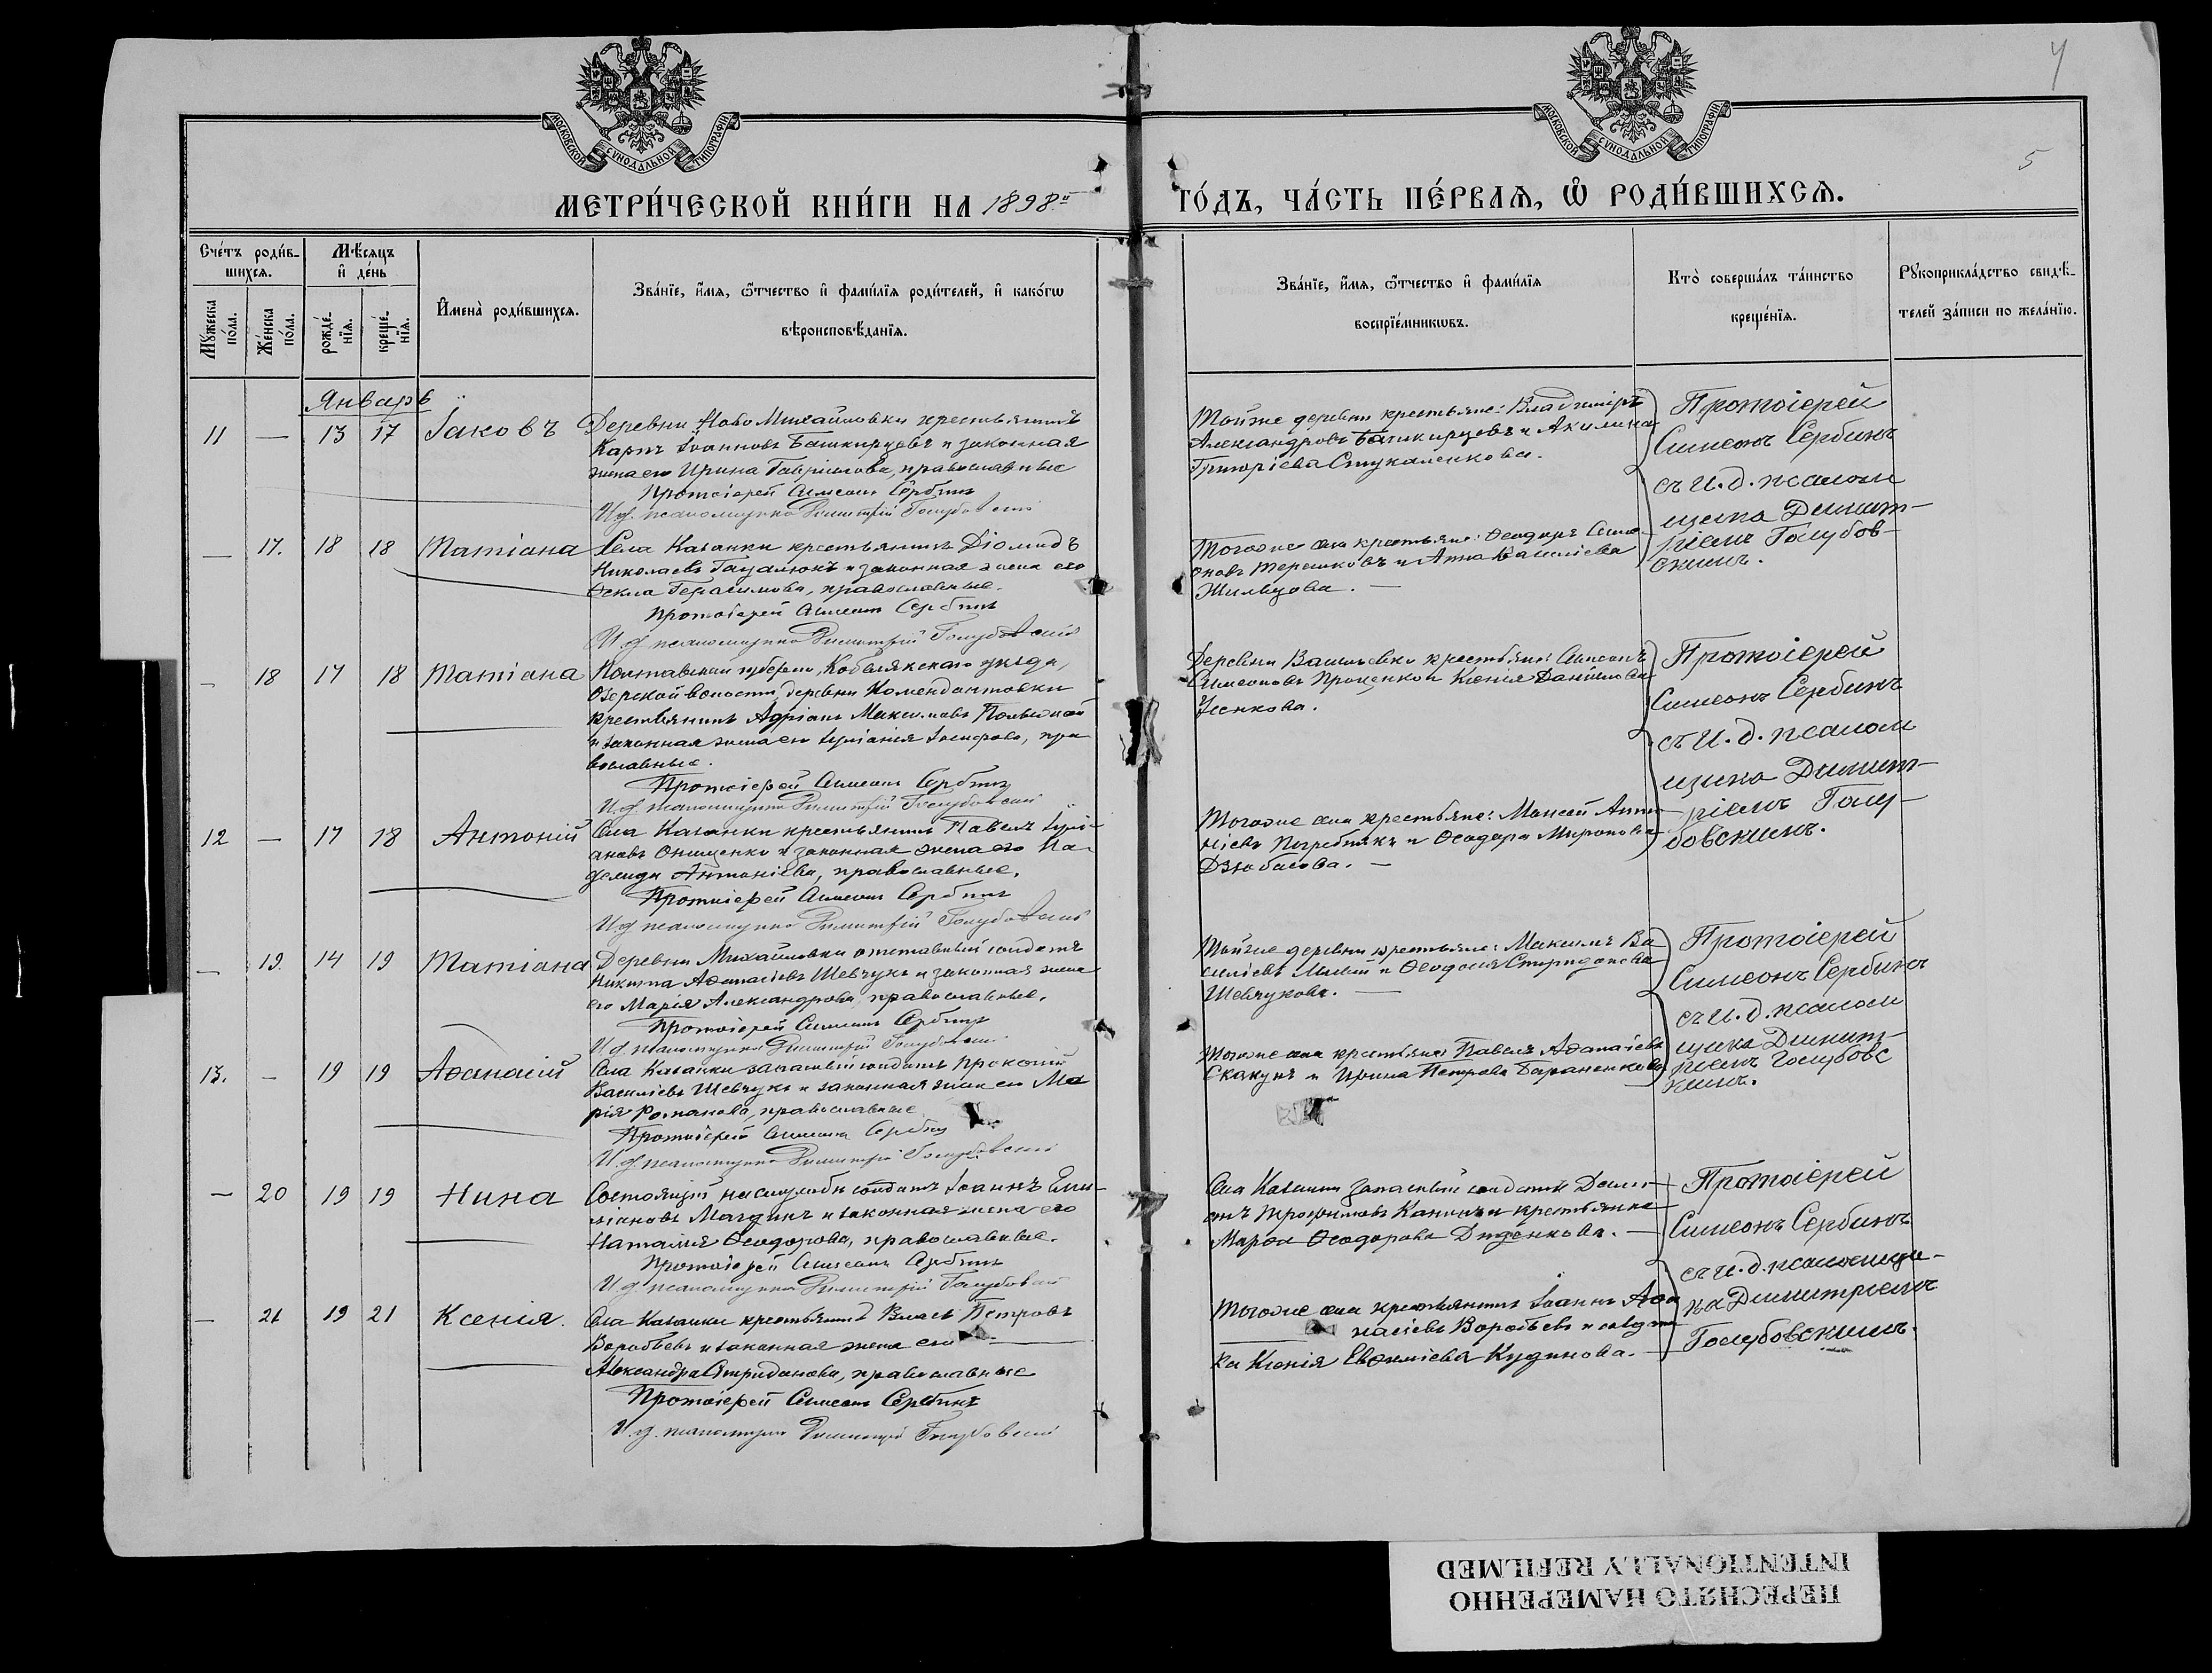 4
5
МОСКОВСКОЙ СѴНОДАЛЬНОЙ ТИПОГРАФІИ
МОСКОВСКОЙ СѴНОДАЛЬНОЙ ТИПОГРАФІИ
МЕТРИ́ЧЕСКОЙ КНИ́ГИ НА 1898й ГО́ДЪ, ЧА́СТЬ ПЕ́РВАѦ, Ѽ РОДИ́ВШИХСѦ.
Сче́тъ роди́в-
шихсѧ.
Мꙋжеска по́ла.
Же́нска по́ла.
Мѣ́сѧцъ и҆ де́нь
рожде́-нїѧ.
креще́-нїѧ.
И҆мена̀ роди́вшихсѧ.
Зва́нїе, и҆́мѧ, ѻ҆́тчество и҆ фами́лїѧ роди́телей, и҆ како́гѡ
вѣроисповѣ́данїѧ.
Зва́нїе, и҆́мѧ, ѻ҆́тчество и҆ фами́лїѧ
воспрїе́мникѡвъ.
Кто̀ соверша́лъ та́инство
креще́нїѧ.
Рꙋкоприкла́дство свидѣ́-
телей за́писи по жела́нїю.
Январь
11 — 13 17 Іаковъ
Деревни Ново Михайловки крестьянинъ
Карпъ Іоанновъ Башкирцевъ и законная
жена его Ирина Гавріилова, православные
Протоіерей Симеонъ Сербинъ
И. д. псаломщика Димитрій Голубовскій
Тойже деревни крестьяне: Владиміръ
Александровъ Башкирцевъ и Акилина
Григоріева Стукаленкова.
Протоіерей
Симеонъ Сербинъ
съ И. д. псалом
щика Димит-
ріемъ Голубов-
скимъ.
— 17. 18 18 Татіана
Села Казанки крестьянинъ Діомидъ
Николаевъ Гацалюкъ и законная жена его
Ѳекла Герасимова, православные.
Протоіерей Симеонъ Сербинъ
И. д. псаломщика Димитрій Голубовскій
Тогоже села крестьяне: Ѳеодоръ Симе-
оновъ Терешковъ и Анна Василіева
Жильцова. —
— 18 17 18 Татіана
Полтавской губерніи, Кобелякскаго уѣзда,
Озерской волости, деревни Комендантовки
крестьянинъ Адріанъ Максимовъ
и законная жена его Іуліанія Іосифова, пра
вославные.
Протоіерей Симеонъ Сербинъ
И. д. псаломщика Димитрій Голубовскій
Деревни Васильевки крестьяне: Симеонъ
Симеоновъ Проценко и Ксенія Даніилова
Усенкова.
Протоіерей
Симеонъ Сербинъ
съ И. д. псалом
щика Димит-
ріемъ Голу-
бовскимъ.
12 — 17 18 Антоній
Села Казанки крестьянинъ Павелъ Іулі-
ановъ Онищенко и законная жена его
Антоніева, православные.
Протоіерей Симеонъ Сербинъ
И. д. псаломщика Димитрій Голубовскій
Тогоже села крестьяне: Моисей Анто-
ніевъ Погребнякъ и Ѳеодора Миронова
Дзюбасова. —
— 19. 14 19 Татіана
Деревни Михайловки отставный солдатъ
Никита Аѳанасіевъ Шевчукъ и законная жена
его Марія Александрова, православные.
Протоіерей Симеонъ Сербинъ
И. д. псаломщика Димитрій Голубовскій
Тойже деревни крестьяне: Максимъ Ва
силіевъ и Ѳеодосія Спиридонова
Шевчукова. —
Протоіерей
Симеонъ Сербинъ
съ И. д. псалом
щика Димит-
ріемъ Голубовс
кимъ.
13. — 19 19 Аѳанасій
Села Казанки запасный солдатъ Прокопій
Василіевъ Шевчукъ и законная жена его Ма
рія Романова, православные
Протоіерей Симеонъ Сербинъ
И. д. псаломщика Димитрій Голубовскій
Тогоже села крестьяне: Павелъ Аѳанасіевъ
Скакунъ и Ирина Петрова Бараненкова
— 20 19 19 Нина
Состоящій на службѣ солдатъ Іоаннъ Еми-
ліановъ Магдинъ и законная жена его
Наталія Ѳеодорова, православные.
Протоіерей Симеонъ Сербинъ
И. д. псаломщика Димитрій Голубовскій
Села Казанки запасный солдатъ
Трофимовъ и крестьянка
Марѳа Ѳеодорова Диденкова. —
Протоіерей
Симеонъ Сербинъ
съ и. д. псаломщи-
ка Димитріемъ
Голубовскимъ.
— 21 19 21 Ксенія.
Села Казанки крестьянинъ Власъ Петровъ
Воробьевъ и законная жена его
Александра Спиридонова, православные
Протоіерей Симеонъ Сербинъ
И. д. псаломщика Димитрій Голубовскій
Тогоже села крестьянинъ Іоаннъ Аѳа
насіевъ Воробьевъ и
ка Ксенія Евѳиміева Кудинова. —
ПЕРЕСНЯТО НАМЕРЕННО
INTENTIONALLY REFILMED